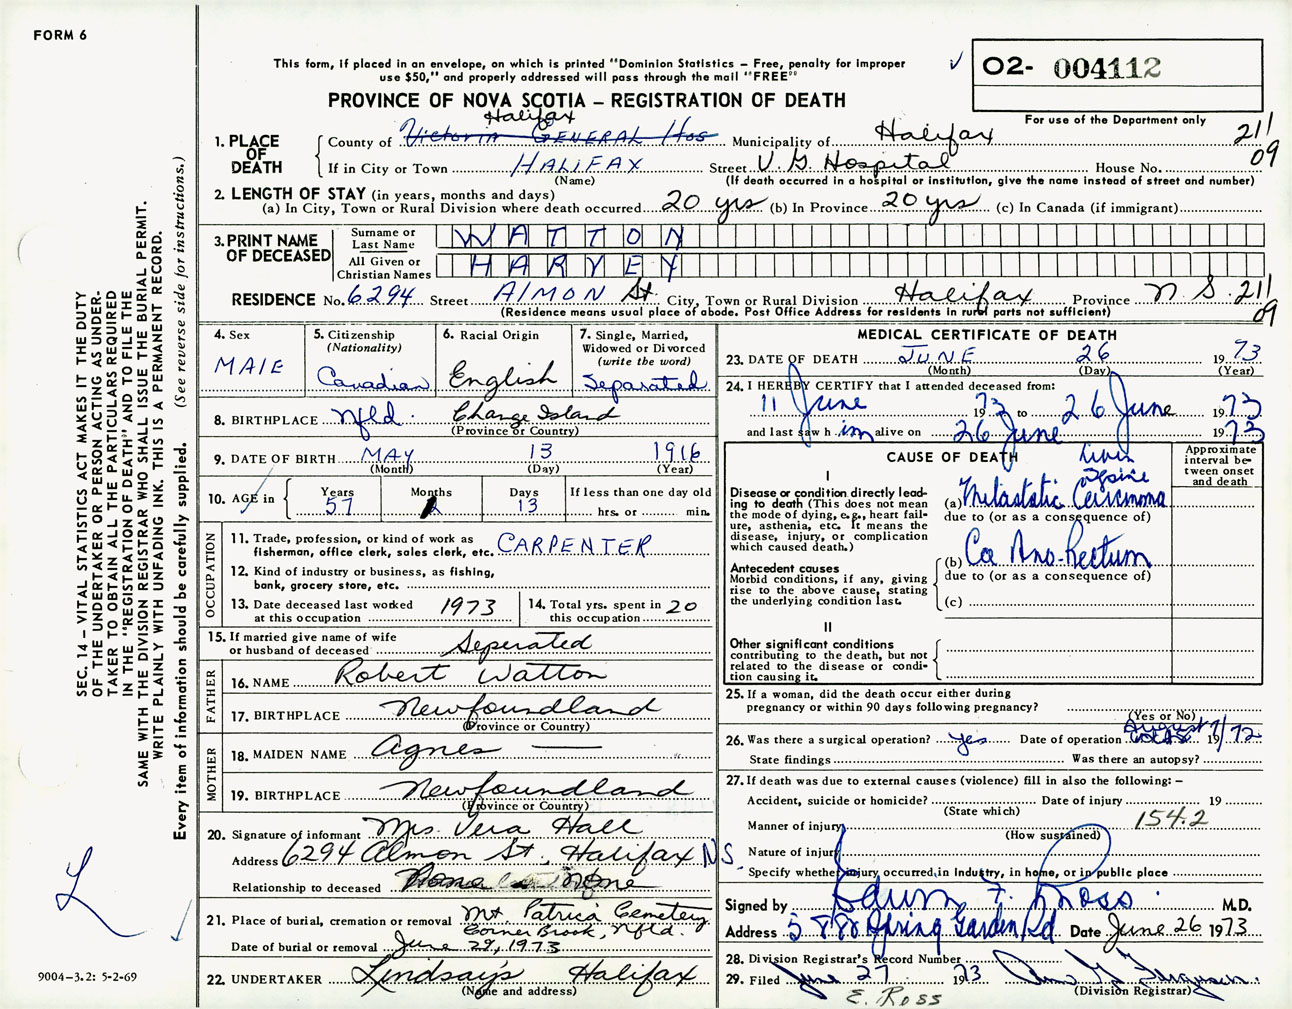 FORM 6
This form, if placed in an envelope, on which is printed "Dominion Statistics – Free, penalty for improper
use $50," and properly addressed will pass through the mail "FREE"
✓ O2- 004112
For use of the Department only
PROVINCE OF NOVA SCOTIA – REGISTRATION OF DEATH
Halifax
1. PLACE OF DEATH County of Victoria GENERAL Hos Municipality of Halifax 211
09
If in City or Town HALIFAX Street V. G. Hospital House No.
(Name) (If death occurred in a hospital or institution, give the name instead of street and number)
2. LENGTH OF STAY (in years, months and days)
(a) In City, Town or Rural Division where death occurred 20 yrs (b) In Province 20 yrs (c) In Canada (if immigrant)
3. PRINT NAME OF DECEASED Surname or Last Name WATTON
All Given or Christian Names HARVEY
RESIDENCE No. 6294 Street AlMON St. City, Town or Rural Division Halifax Province N.S. 211
09
(Residence means usual place of abode. Post Office Address for residents in rural parts not sufficient)
4. Sex MAlE
5. Citizenship (Nationality) Canadian
6. Racial Origin English
7. Single, Married, Widowed or Divorced (write the word) Separated
8. BIRTHPLACE Nfld. Change Island
(Province or Country)
9. DATE OF BIRTH MAY 13 1916
(Month) (Day) (Year)
10. AGE in Years 57 Months Days 13 If less than one day old
hrs. or min.
OCCUPATION
11. Trade, profession, or kind of work as
fisherman, office clerk, sales clerk, etc. CARPENTER
12. Kind of industry or business, as fishing,
bank, grocery store, etc.
13. Date deceased last worked at this occupation 1973
14. Total yrs. spent in this occupation 20
15. If married give name of wife
or husband of deceased Seperated
FATHER
16. NAME Robert Watton
17. BIRTHPLACE Newfoundland
(Province or Country)
MOTHER
18. MAIDEN NAME Agnes —
19. BIRTHPLACE Newfoundland
(Province or Country)
20. Signature of informant Mrs. Vera Hall
Address 6294 Almon St., Halifax NS.
Relationship to deceased None
21. Place of burial, cremation or removal Mt. Patricia Cemetery
Corner Brook, Nfld.
Date of burial or removal June 29, 1973
22. UNDERTAKER Lindsay's Halifax
(Name and address)
MEDICAL CERTIFICATE OF DEATH
23. DATE OF DEATH JUNE 26 1973
(Month) (Day) (Year)
24. I HEREBY CERTIFY that I attended deceased from:
11 June 1973 to 26 June 1973
and last saw h im alive on 26 June 1973
CAUSE OF DEATH
Approximate interval between onset and death
I
Disease or condition directly leading
to death (This does not mean
the mode of dying, e.g., heart failure,
asthenia, etc. It means the
disease, injury, or complication
which caused death.)
liver
spine
(a) Metastatic Carcinoma
due to (or as a consequence of)
Antecedent causes
Morbid conditions, if any, giving
rise to the above cause, stating
the underlying condition last.
(b) Ca Ano-Rectum
due to (or as a consequence of)
(c)
II
Other significant conditions
contributing to the death, but not
related to the disease or condition
causing it.
25. If a woman, did the death occur either during
pregnancy or within 90 days following pregnancy?
(Yes or No)
26. Was there a surgical operation? yes Date of operation August 19 7/72
State findings Was there an autopsy?
27. If death was due to external causes (violence) fill in also the following: –
Accident, suicide or homicide? Date of injury 19
(State which)
Manner of injury 154.2
(How sustained)
Nature of injury
Specify whether injury occurred in industry, in home, or in public place
Signed by Edwin F. Ross M.D.
Address 5880 Spring Garden Rd Date June 26 1973
28. Division Registrar's Record Number
29. Filed June 27 1973
(Division Registrar)
E. Ross
SEC. 14 – VITAL STATISTICS ACT MAKES IT THE DUTY
OF THE UNDERTAKER OR PERSON ACTING AS UNDERTAKER
TO OBTAIN ALL THE PARTICULARS REQUIRED
IN THE "REGISTRATION OF DEATH" AND TO FILE THE
SAME WITH THE DIVISION REGISTRAR WHO SHALL ISSUE THE BURIAL PERMIT.
WRITE PLAINLY WITH UNFADING INK. THIS IS A PERMANENT RECORD.
Every item of information should be carefully supplied. (See reverse side for instructions.)
L
9004-3.2: 5-2-69